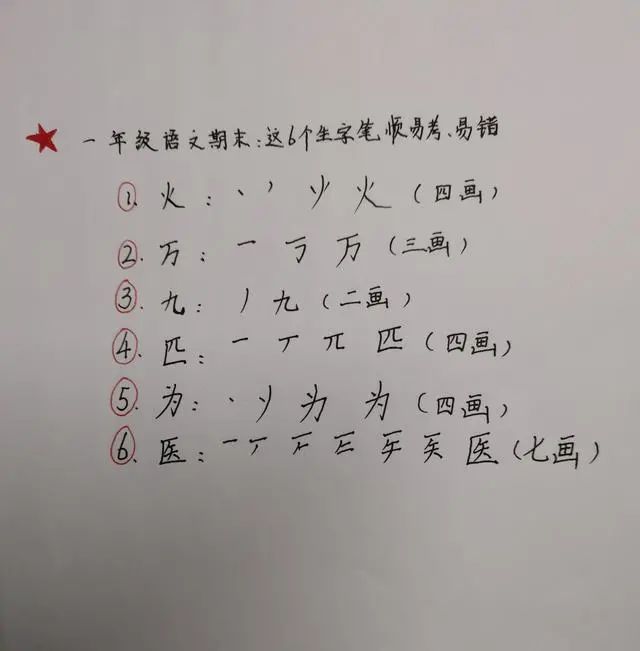 一年级语文期末:这6个生字笔顺易考、易错
①. 火:丶 丷 火(四画)
②. 万:一 丂 万(三画)
③. 九:丿 九(二画)
④. 匹:一 丆 兀 匹(四画)
⑤. 为:丶 丷 为 为(四画)
⑥. 医:一 丆 医(七画)